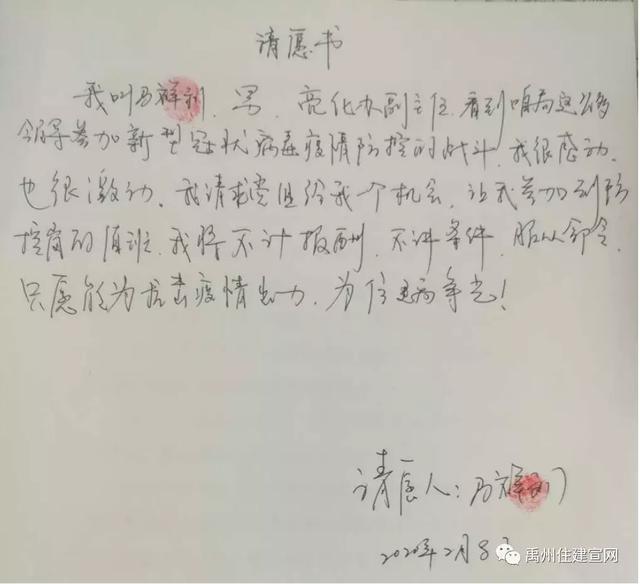 请愿书
我叫马祥利，男，亮化办副主任，看到咱局这么多
领导参加新型冠状病毒疫情防控的战斗，我很感动，
也很激动，我请求党组给我一个机会，让我参加到防
控岗的值班，我将不计报酬，不讲条件，服从命令，
只愿能为抗击疫情出力，为住建局争光！
请愿人：马祥利
2020年2月8日
禹州住建宣网